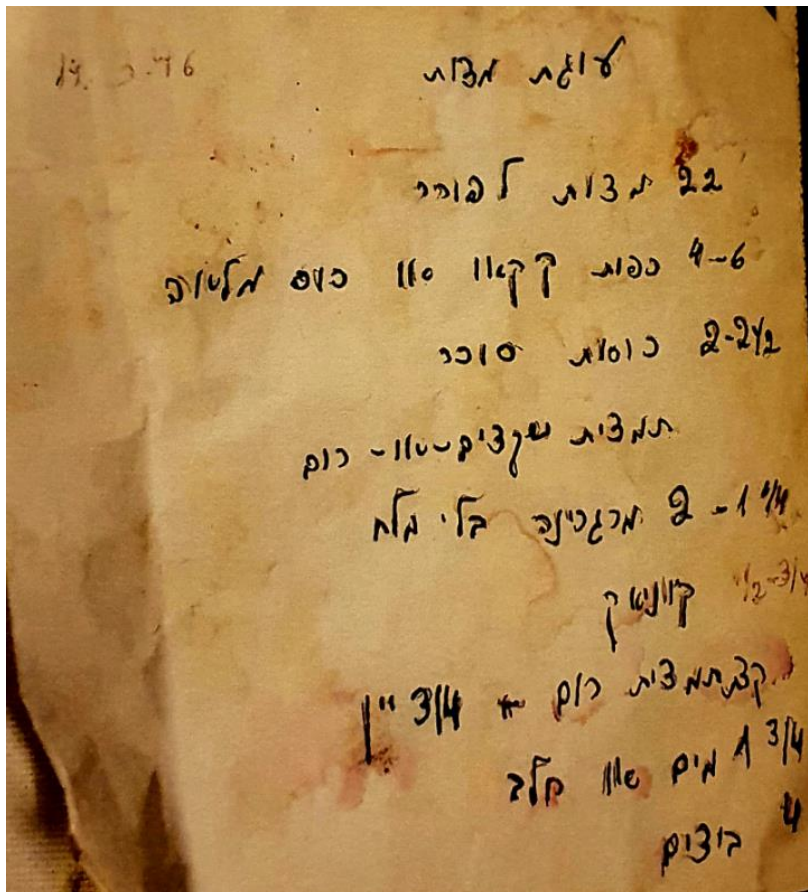 עוגת מצות
22 מצות לפורר
4-6 כפות קקאו או כוס מלטוה
2-2 1/2 כוסות סוכר
תמצית שקדים - או - רום
1 1/4 - 2 מרגרינה בלי מלח
1/2-3/4 קוניאק
קצת תמצית רום 3/4 יין
1 3/4 מים או חלב
4 ביצים